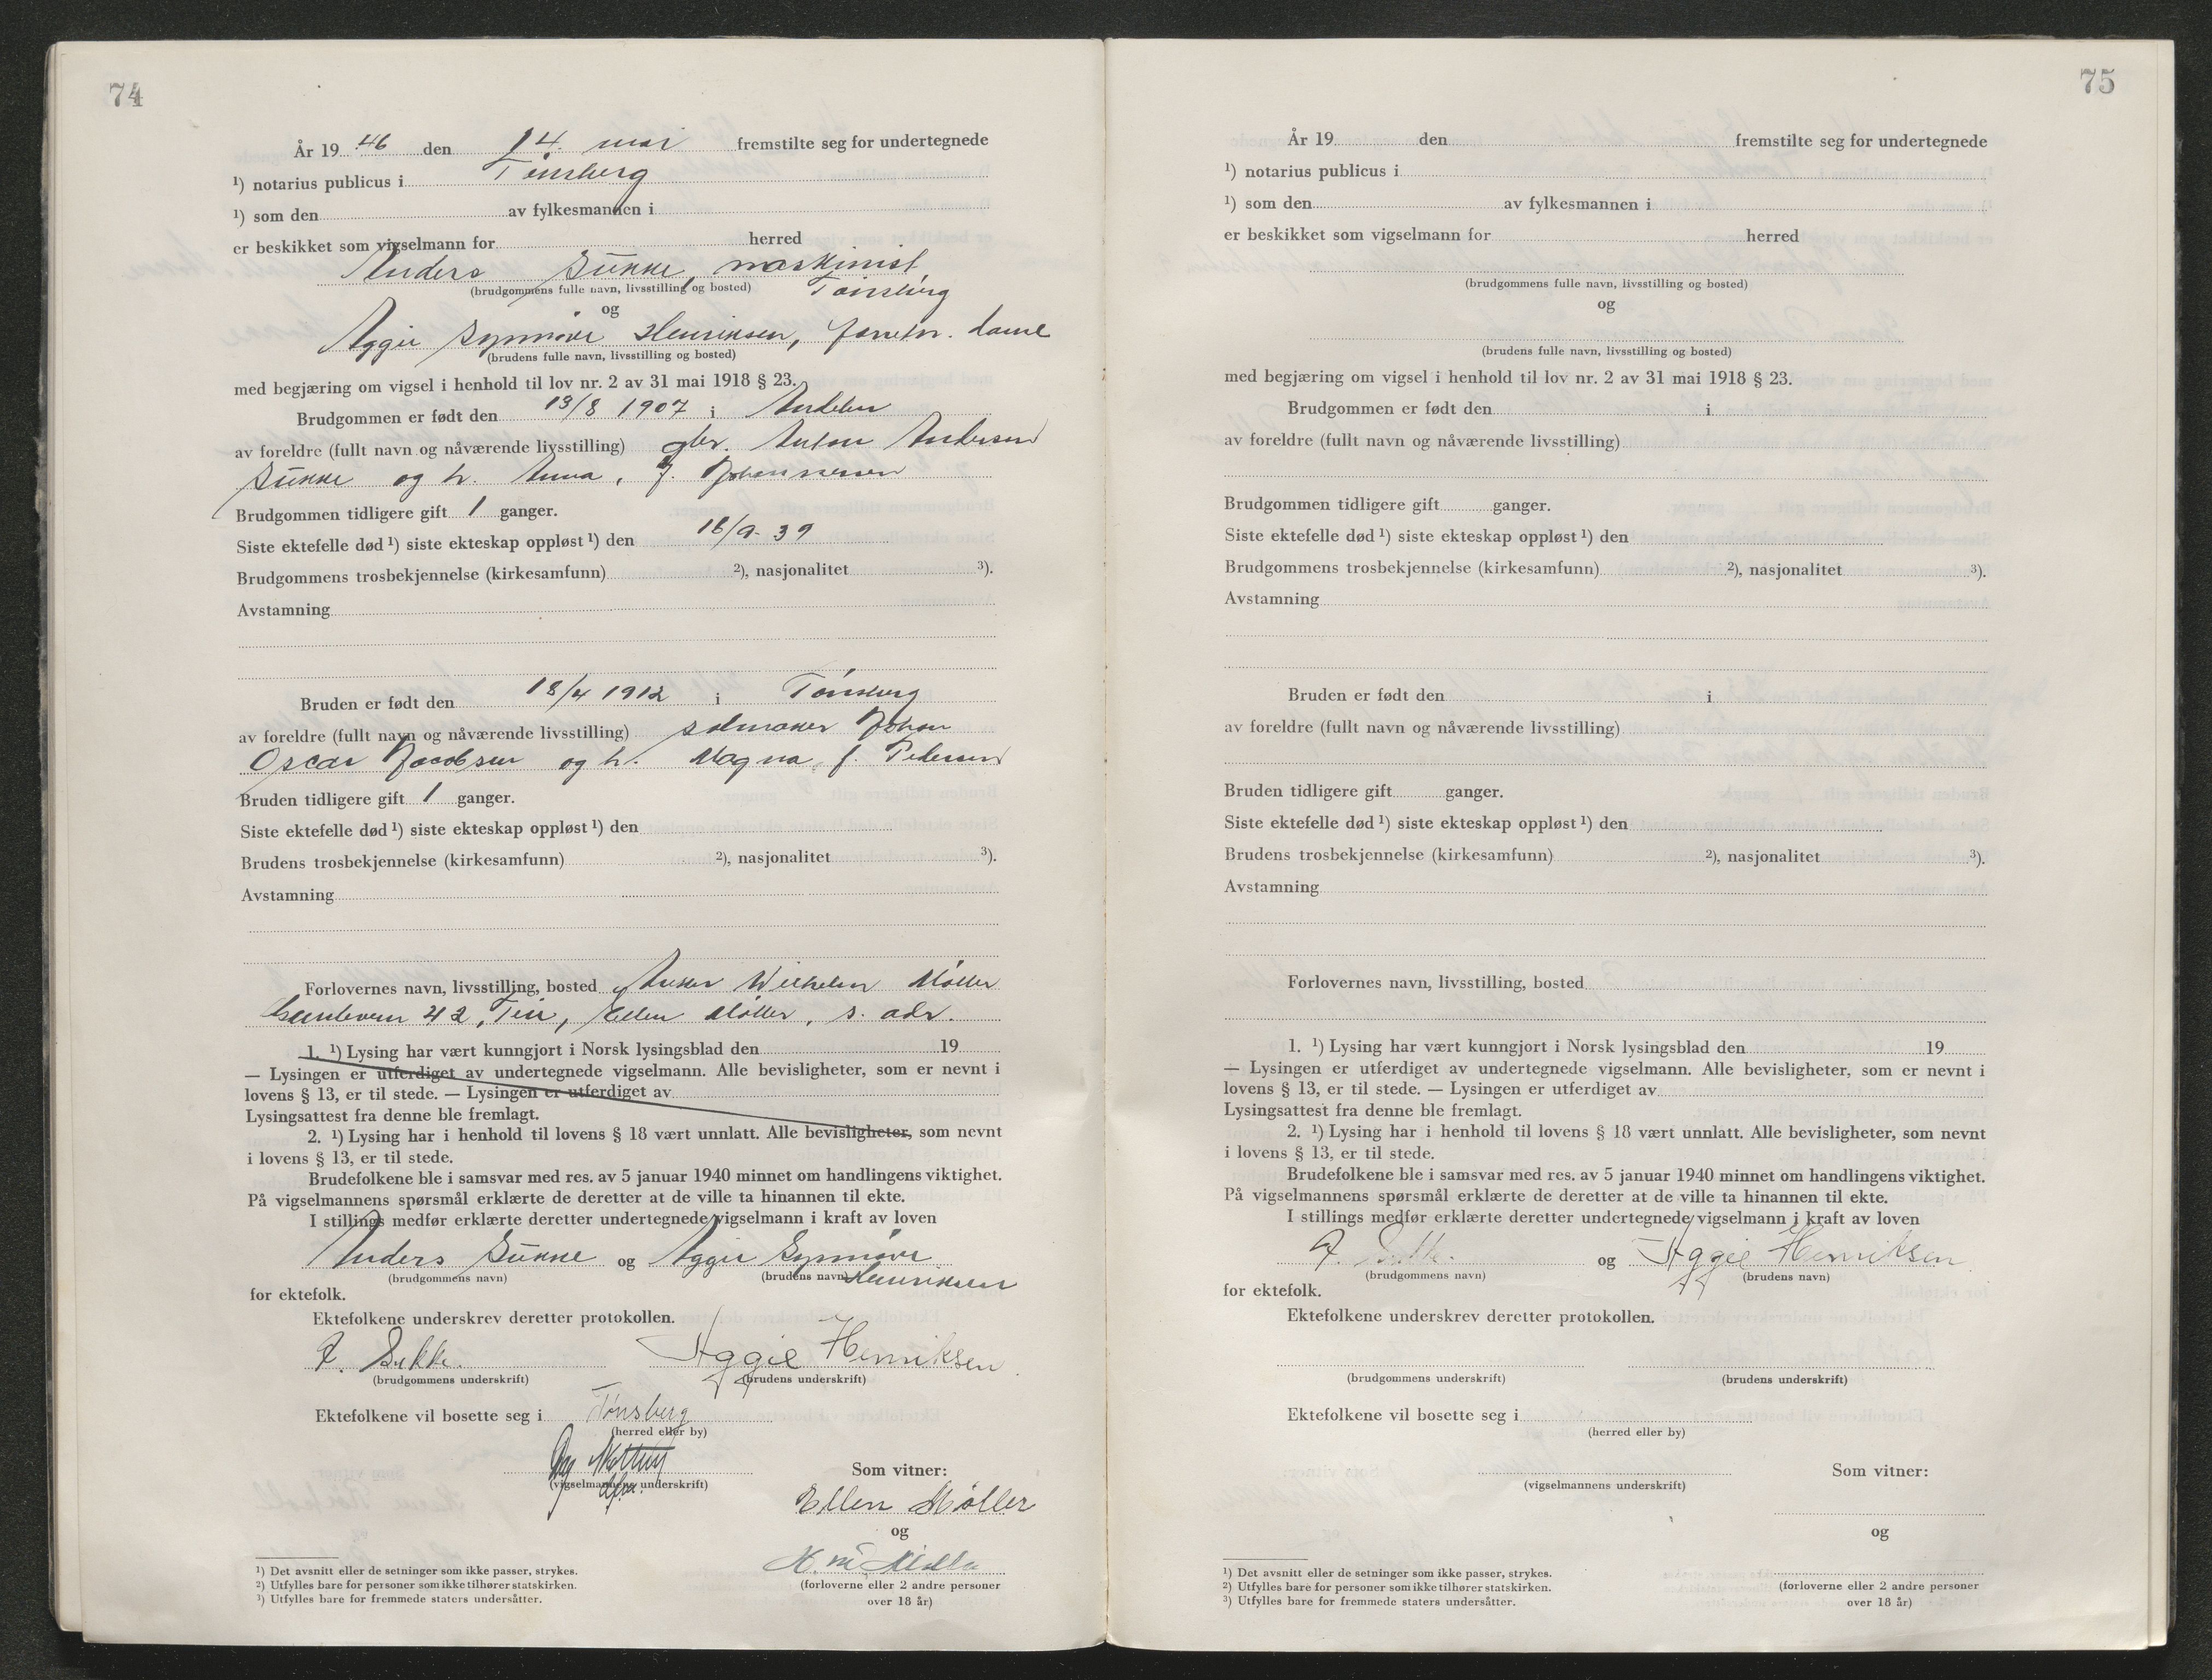 74
År 19 46 den 14. mai fremstilte seg for undertegnede
¹) notarius publicus i Tønsberg
¹) som den av fylkesmannen i
er beskikket som vigselmann for herred
Anders Sukke, maskinist,
(brudgommens fulle navn, livsstilling og bosted) Tønsberg
og
Aggie Synnøve Henriksen, forretn. dame
(brudens fulle navn, livsstilling og bosted)
med begjæring om vigsel i henhold til lov nr. 2 av 31 mai 1918 § 23.
Brudgommen er født den 13/8 1907 i
av foreldre (fullt navn og nåværende livsstilling) Anton Andersen
Sukke og h. Anna, f. Johannessen
Brudgommen tidligere gift 1 ganger.
Siste ektefelle død ¹) siste ekteskap oppløst ¹) den 18/9-39
Brudgommens trosbekjennelse (kirkesamfunn) ²), nasjonalitet ³).
Avstamning
Bruden er født den 18/4 1912 i Tønsberg
av foreldre (fullt navn og nåværende livsstilling) Johan
Oscar Jacobsen og h. Magna, f. Pedersen
Bruden tidligere gift 1 ganger.
Siste ektefelle død ¹) siste ekteskap oppløst ¹) den
Brudens trosbekjennelse (kirkesamfunn) ²), nasjonalitet ³).
Avstamning
Forlovernes navn, livsstilling, bosted Wilhelm Møller
42, Ellen Møller, s. adr.
1. ¹) Lysing har vært kunngjort i Norsk lysingsblad den 19
— Lysingen er utferdiget av undertegnede vigselmann. Alle bevisligheter, som er nevnt i
lovens § 13, er til stede. — Lysingen er utferdiget av
Lysingsattest fra denne ble fremlagt.
2. ¹) Lysing har i henhold til lovens § 18 vært unnlatt. Alle bevisligheter, som nevnt
i lovens § 13, er til stede.
Brudefolkene ble i samsvar med res. av 5 januar 1940 minnet om handlingens viktighet.
På vigselmannens spørsmål erklærte de deretter at de ville ta hinannen til ekte.
I stillings medfør erklærte deretter undertegnede vigselmann i kraft av loven
Anders Sukke og Aggie Synnøve
(brudgommens navn) (brudens navn) Henriksen
for ektefolk.
Ektefolkene underskrev deretter protokollen.
A. Sukke. Aggie Henriksen
(brudgommens underskrift) (brudens underskrift)
Ektefolkene vil bosette seg i Tønsberg
(herred eller by)
(vigselmannens underskrift)
Som vitner:
Ellen Møller
og
(forloverne eller 2 andre personer
over 18 år)
¹) Det avsnitt eller de setninger som ikke passer, strykes.
²) Utfylles bare for personer som ikke tilhører statskirken.
³) Utfylles bare for fremmede staters undersåtter.
75
År 19 den fremstilte seg for undertegnede
¹) notarius publicus i
¹) som den av fylkesmannen i
er beskikket som vigselmann for herred
(brudgommens fulle navn, livsstilling og bosted)
og
(brudens fulle navn, livsstilling og bosted)
med begjæring om vigsel i henhold til lov nr. 2 av 31 mai 1918 § 23.
Brudgommen er født den i
av foreldre (fullt navn og nåværende livsstilling)
Brudgommen tidligere gift ganger.
Siste ektefelle død ¹) siste ekteskap oppløst ¹) den
Brudgommens trosbekjennelse (kirkesamfunn) ²), nasjonalitet ³).
Avstamning
Bruden er født den i
av foreldre (fullt navn og nåværende livsstilling)
Bruden tidligere gift ganger.
Siste ektefelle død ¹) siste ekteskap oppløst ¹) den
Brudens trosbekjennelse (kirkesamfunn) ²), nasjonalitet ³).
Avstamning
Forlovernes navn, livsstilling, bosted
1. ¹) Lysing har vært kunngjort i Norsk lysingsblad den 19
— Lysingen er utferdiget av undertegnede vigselmann. Alle bevisligheter, som er nevnt i
lovens § 13, er til stede. — Lysingen er utferdiget av
Lysingsattest fra denne ble fremlagt.
2. ¹) Lysing har i henhold til lovens § 18 vært unnlatt. Alle bevisligheter, som nevnt
i lovens § 13, er til stede.
Brudefolkene ble i samsvar med res. av 5 januar 1940 minnet om handlingens viktighet.
På vigselmannens spørsmål erklærte de deretter at de ville ta hinannen til ekte.
I stillings medfør erklærte deretter undertegnede vigselmann i kraft av loven
A. Sukke. og Aggie Henriksen
(brudgommens navn) (brudens navn)
for ektefolk.
Ektefolkene underskrev deretter protokollen.
(brudgommens underskrift) (brudens underskrift)
Ektefolkene vil bosette seg i
(herred eller by)
(vigselmannens underskrift)
Som vitner:
og
(forloverne eller 2 andre personer
over 18 år)
¹) Det avsnitt eller de setninger som ikke passer, strykes.
²) Utfylles bare for personer som ikke tilhører statskirken.
³) Utfylles bare for fremmede staters undersåtter.